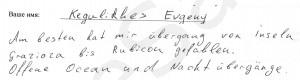 Ваше имя: Kegulikhes Evgenij
Am besten hat mir übergang von inseln
Graziosa bis Rubicon gefallen.
Offene Ocean und Nachtübergänge.